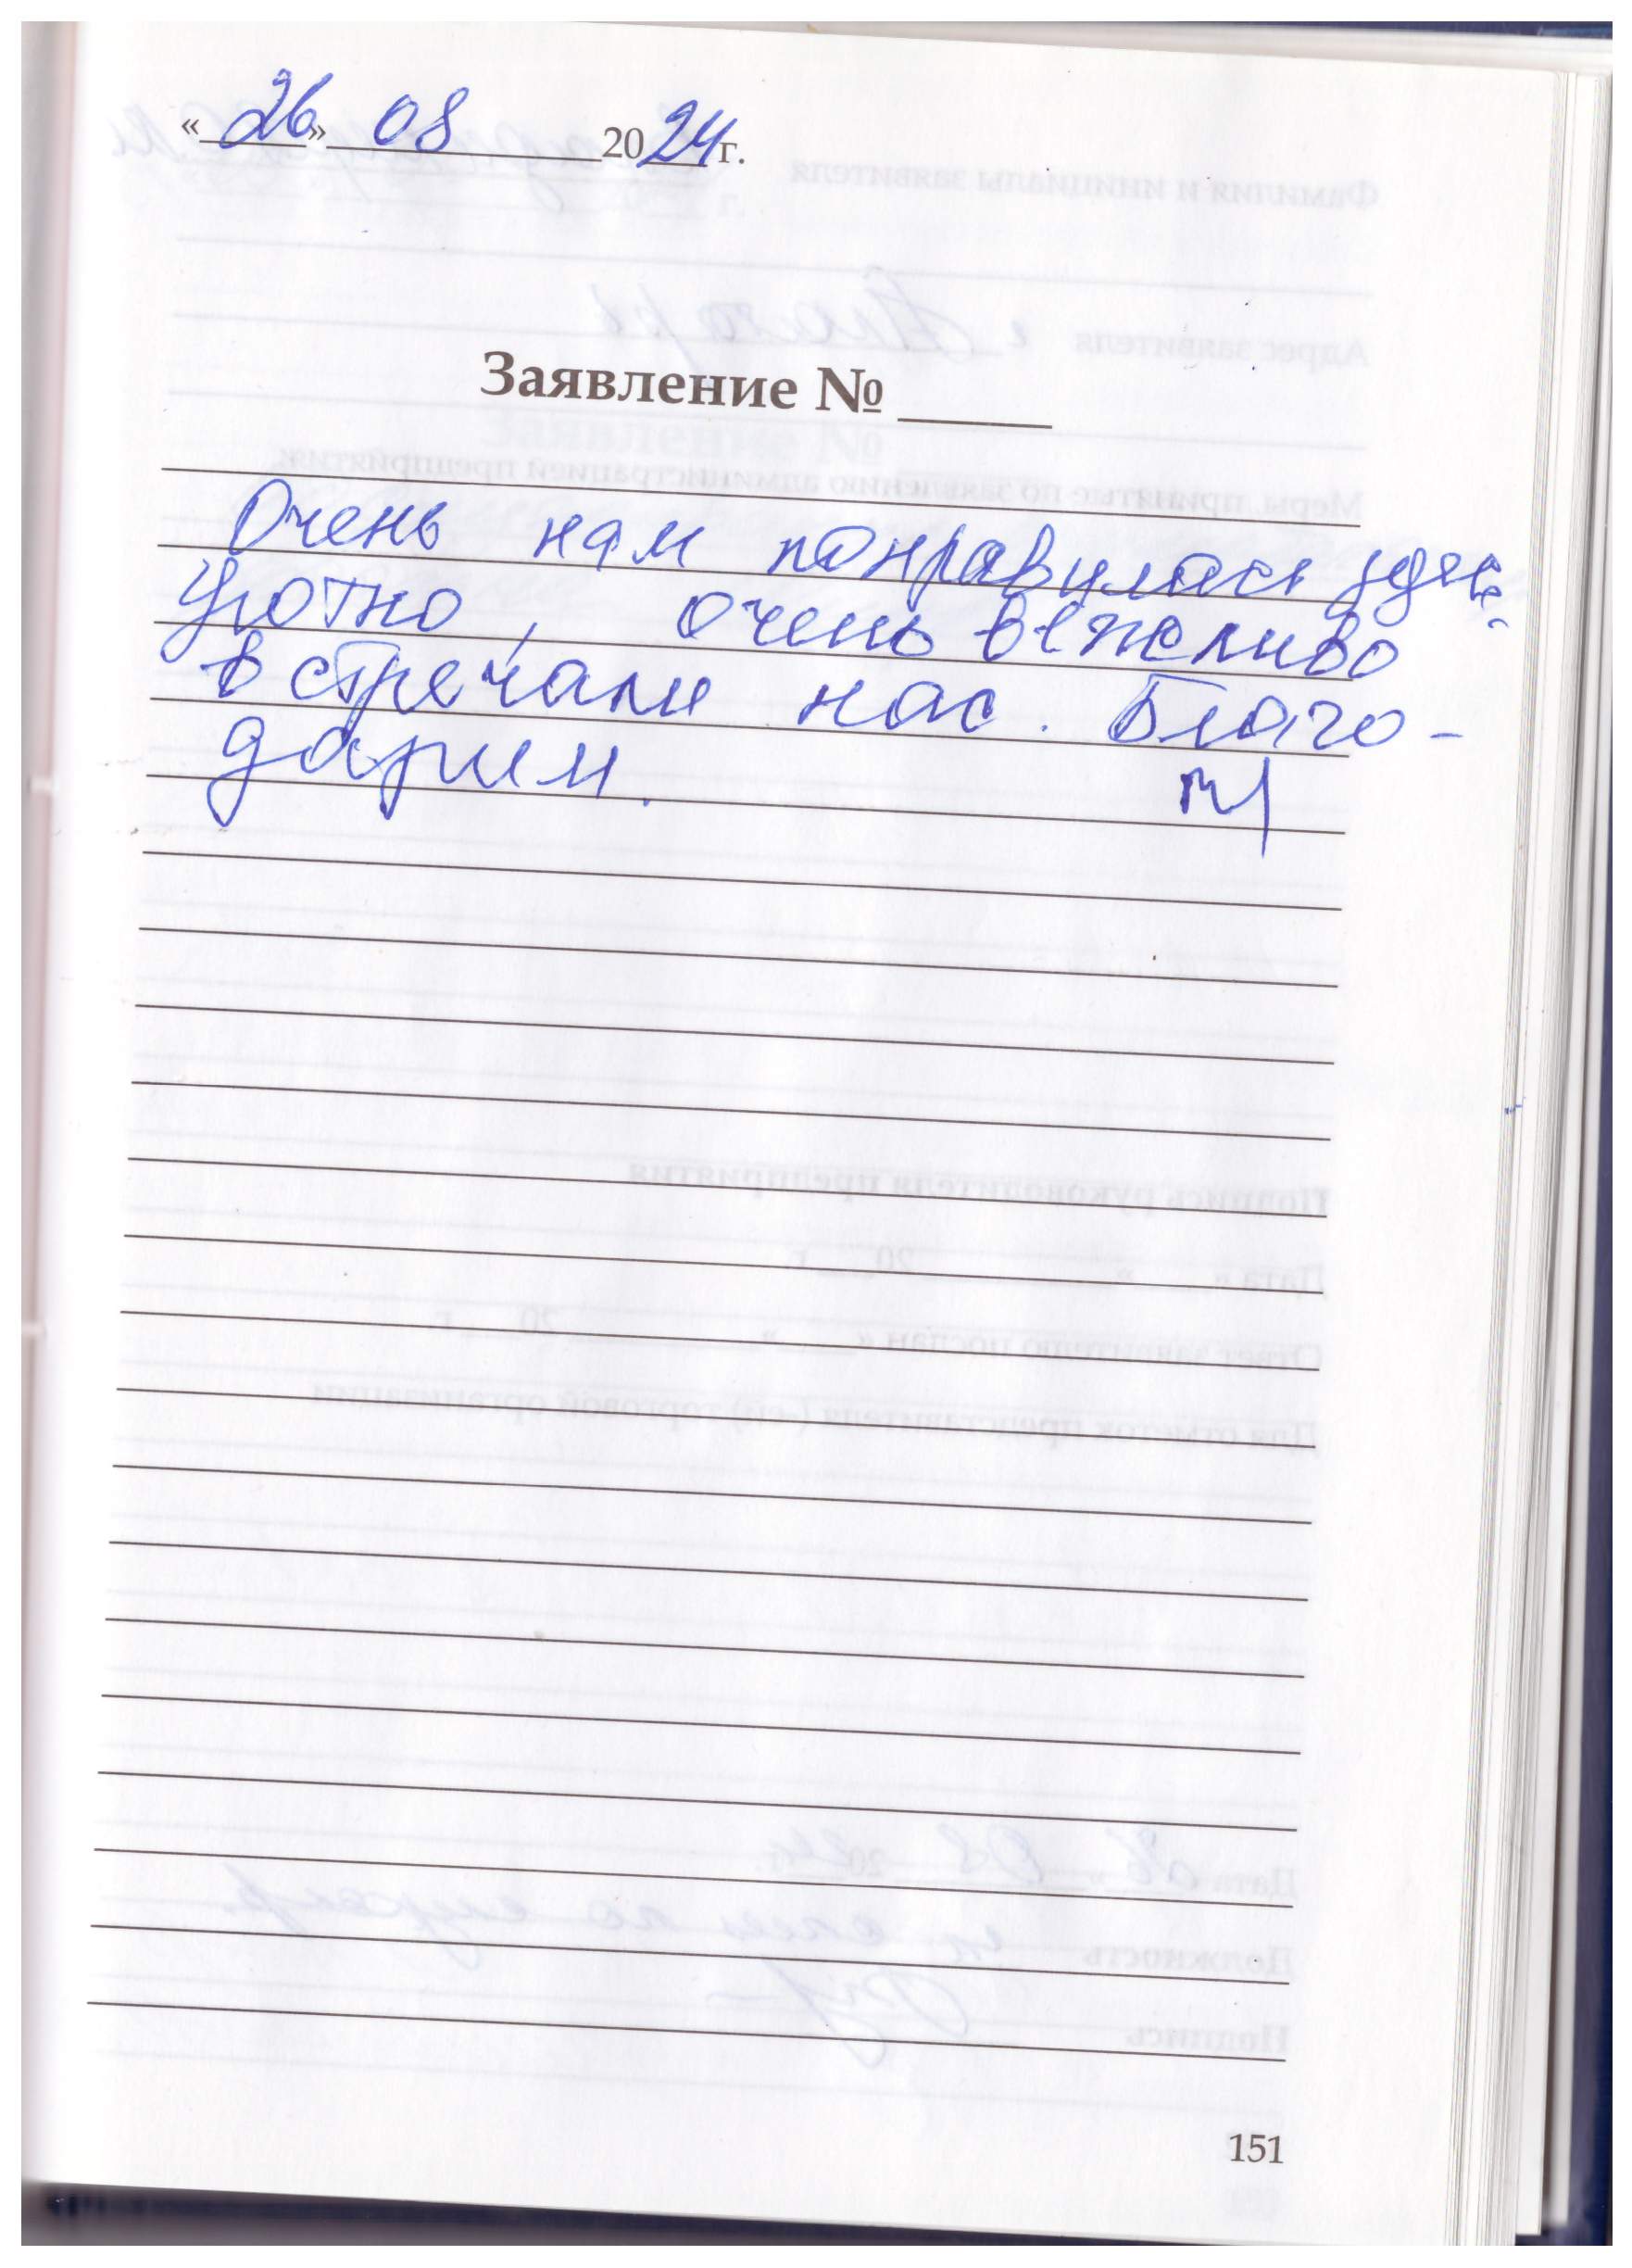 «26» 08 2024 г.
Заявление №
Очень нам понравилась здесь
Уютно, очень вежливо
встречали нас. Благо-
дарим.
151